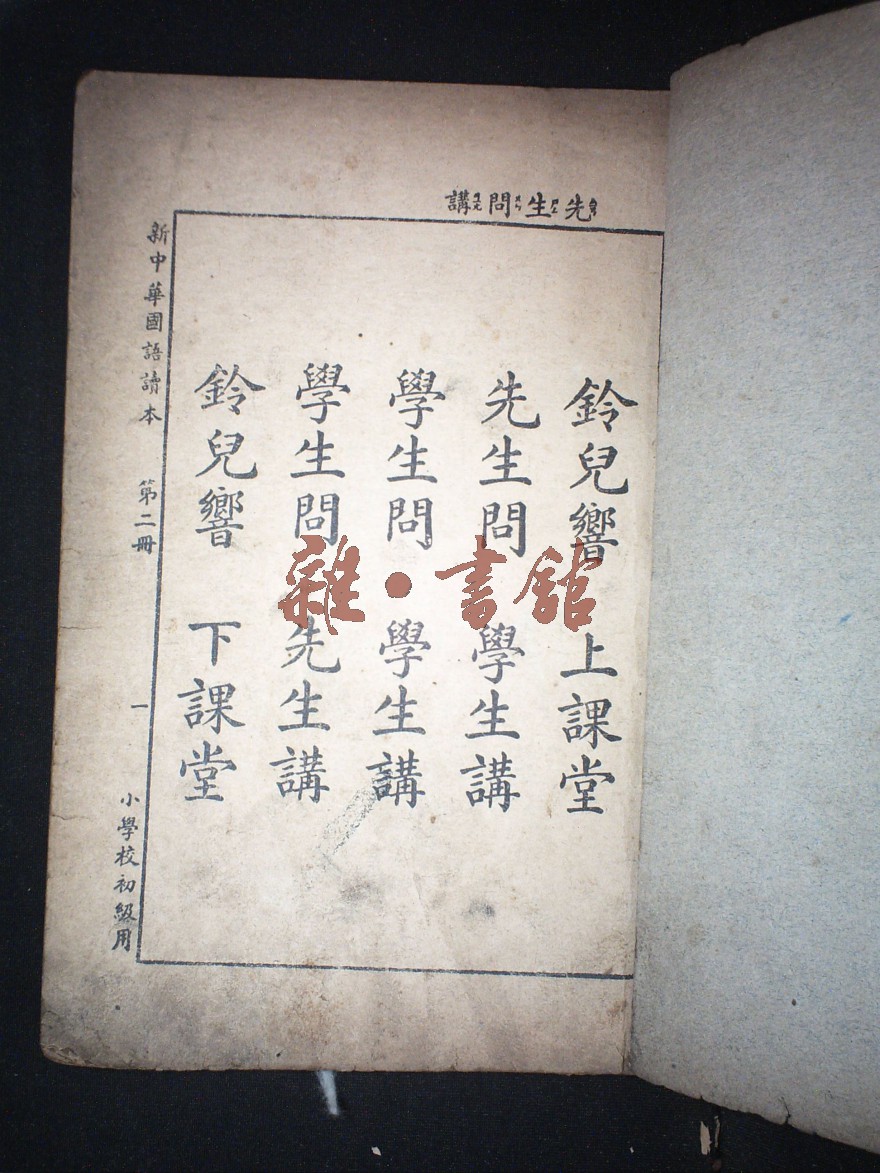 先生問講
鈴兒響 上課堂
先生問 學生講
學生問 學生講
學生問 先生講
鈴兒響 下課堂
新中華國語讀本 第二冊 一 小學校初級用
雜·書館